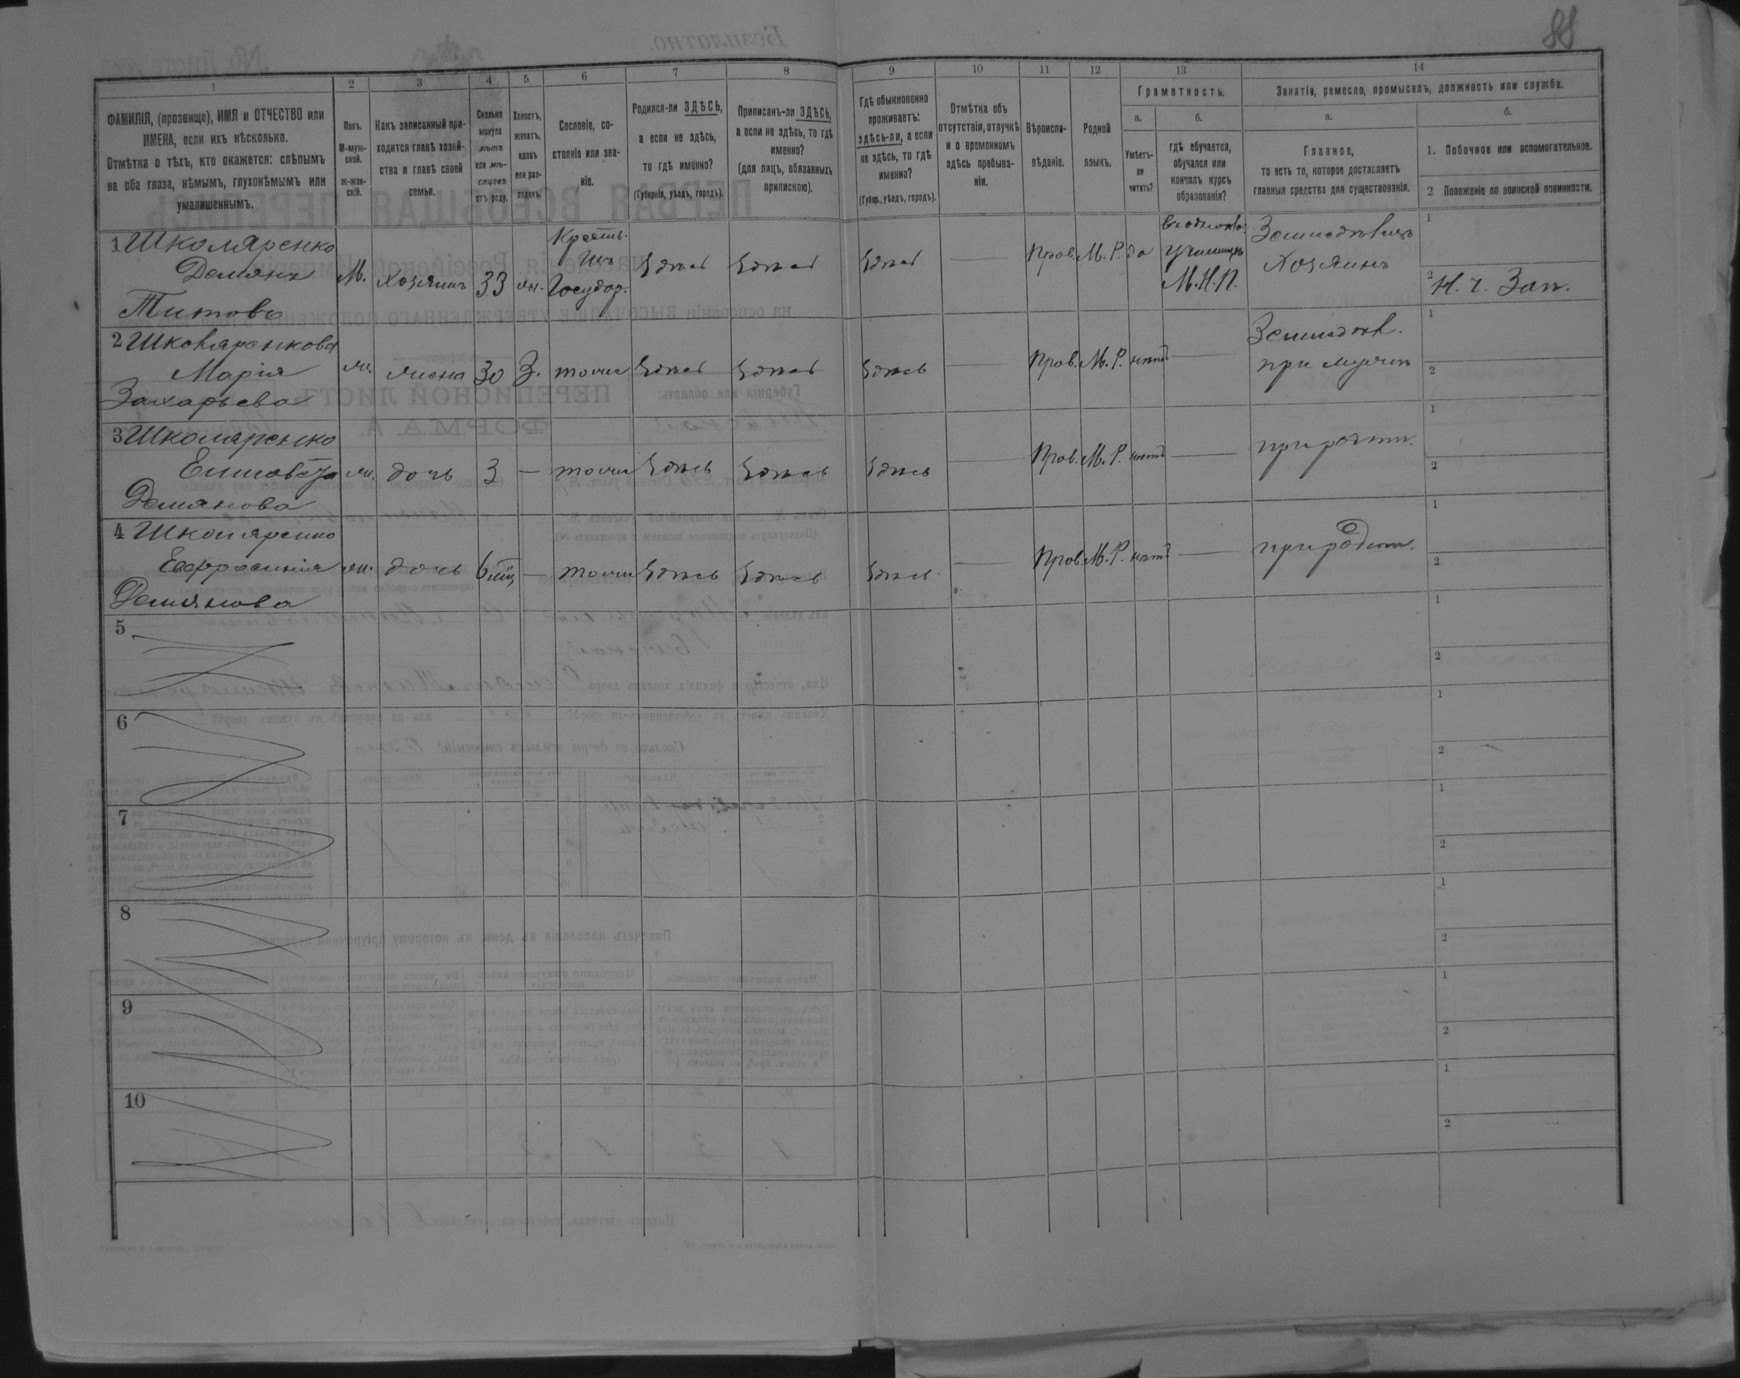 88
1 2 3 4 5 6 7 8 9 10 11 12 13 14
ФАМИЛІЯ, (прозвище), ИМЯ и ОТЧЕСТВО или
ИМЕНА, если ихъ нѣсколько.
Отмѣтка о тѣхъ, кто окажется: слѣпымъ
на оба глаза, нѣмымъ, глухонѣмымъ или
умалишеннымъ.
Полъ.
М-муж-
ской.
Ж-жен-
скій.
Какъ записанный при-
ходится главѣ хозяй-
ства и главѣ своей
семьи.
Сколько
минуло
лѣтъ
или мѣ-
сяцевъ
отъ роду.
Холостъ,
женатъ,
вдовъ
или раз-
веденъ.
Сословіе, со-
стояніе или зва-
ніе.
Родился-ли ЗДѢСЬ,
а если не здѣсь,
то гдѣ именно?
(Губернія, уѣздъ, городъ).
Приписанъ-ли ЗДѢСЬ,
а если не здѣсь, то гдѣ
именно?
(для лицъ, обязанныхъ
припискою).
Гдѣ обыкновенно
проживаетъ:
здѣсь-ли, а если
не здѣсь, то гдѣ
именно?
(Губер., уѣздъ, городъ).
Отмѣтка объ
отсутствіи, отлучкѣ
и о временномъ
здѣсь пребыва-
ніи.
Вѣроиспо-
вѣданіе.
Родной
языкъ.
Грамотность.
а.
Умѣетъ-
ли
читать?
б.
гдѣ обучается,
обучался или
кончилъ курсъ
образованія?
Занятія, ремесло, промыселъ, должность или служба.
а.
Главное,
то есть то, которое доставляетъ
главныя средства для существованія.
б.
1. Побочное или вспомогательное.
2 Положеніе по воинской повинности.
1 Школяренко
Демянъ
Титовъ
М. Хозяинъ 33 жн.
Государ.
Здѣсь Здѣсь Здѣсь — Прав. М.Р. да
училищѣ
М.Н.П.
Земледѣлецъ
Хозяинъ
1
2 Н. ч. Зап.
2 Школяренкова
Марія
Захарьева
ж. жена 30 З. тоже Здѣсь Здѣсь Здѣсь — Прав. М.Р. нѣтъ —
Земледѣл.
при мужѣ
1
2
3 Школяренко
Елисавета
Демянова
ж. дочь 3 — тоже Здѣсь Здѣсь Здѣсь — Прав. М.Р. нѣтъ — при родит.
1
2
4 Школяренко
Ефросинія
Демянова
ж. дочь 6 мѣц — тоже Здѣсь Здѣсь Здѣсь — Прав. М.Р. нѣтъ — при родит.
1
2
5
1
2
6
1
2
7
1
2
8
1
2
9
1
2
10
1
2